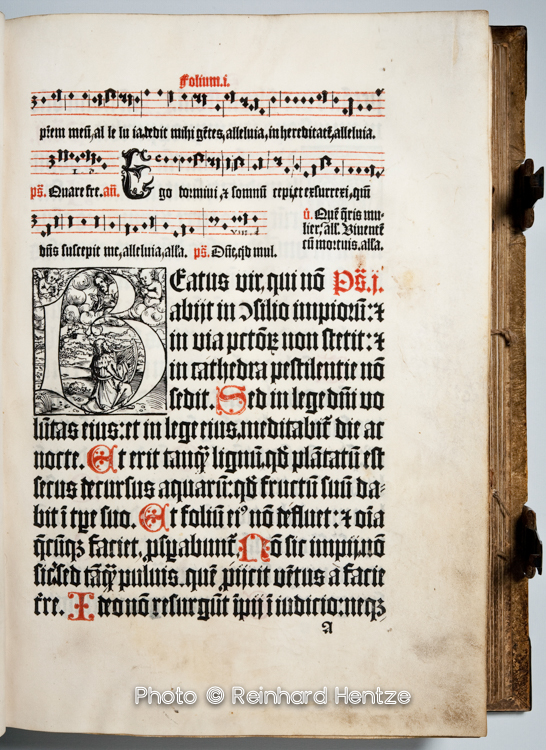 Folium.i.
p̄rem meū, al le lu ia. dedit mihi gētes, alleluia, in hereditatē, alleluia.
ps̄. Quare fre. añ. Ego dormiui, ⁊ somnū cepi, et exsurrexi, qm̄
dn̄s suscepit me, alleluia, alla. ps̄. Dn̄e, qd mul.
ū. Quē q̄ris mu-
lier, alla. Viuentē
cū mortuis, alla.
Beatus vir, qui nō Ps̄.i.
abijt in ↄsilio impiorū: ⁊
in via pctōꝝ non stetit: ⁊
in cathedra pestilentie nō
sedit. Sed in lege dn̄i vo
lūtas eius: et in lege eius meditabit̄ die ac
nocte. Et erit tanq̄ʒ lignū, qd̄ plātatū est
secus decursus aquarū: qd̄ fructū suū da-
bit ī tp̄e suo. Et foliū ei⁹ nō defluet: ⁊ oīa
q̄cūqꝫ faciet, ꝓsꝑabunt̄. Nō sic impij, nō
sic: sed tāq̄ʒ puluis, quē ꝓijcit vētus a facie
tr̄e. Ideo nō resurgūt īpij ī iudicio: neqꝫ
A
Photo © Reinhard Hentze